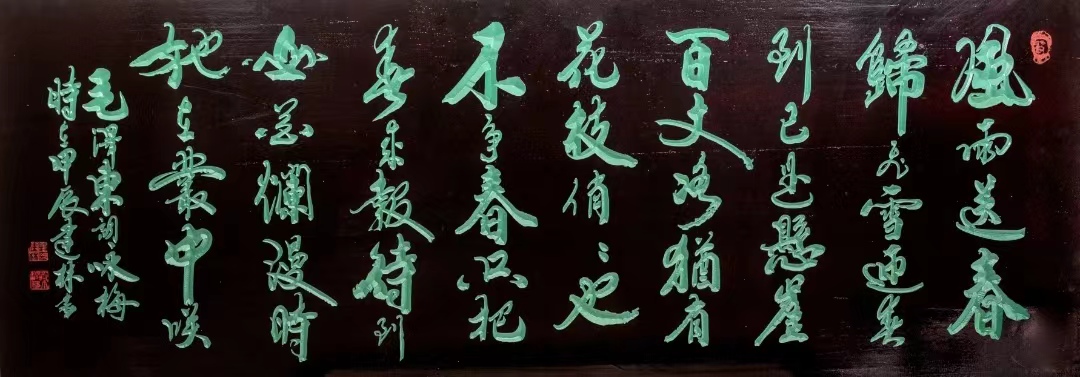 風雨送春
歸飛雪迎春
到已是懸崖
百丈冰猶有
花枝俏〻也
不爭春只把
春來報待到
山花爛漫時
她在叢中咲
毛澤東詞咏梅
時在甲辰建林書